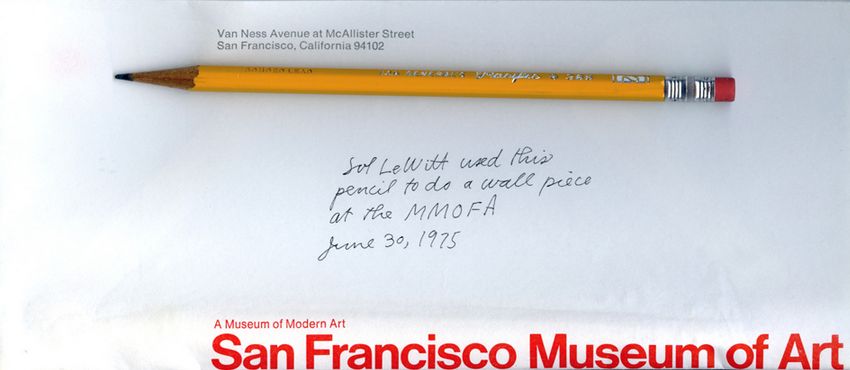 Van Ness Avenue at McAllister Street
San Francisco, California 94102
Sol LeWitt used this
pencil to do a wall piece
at the MMOFA
June 30, 1975
A Museum of Modern Art
San Francisco Museum of Art